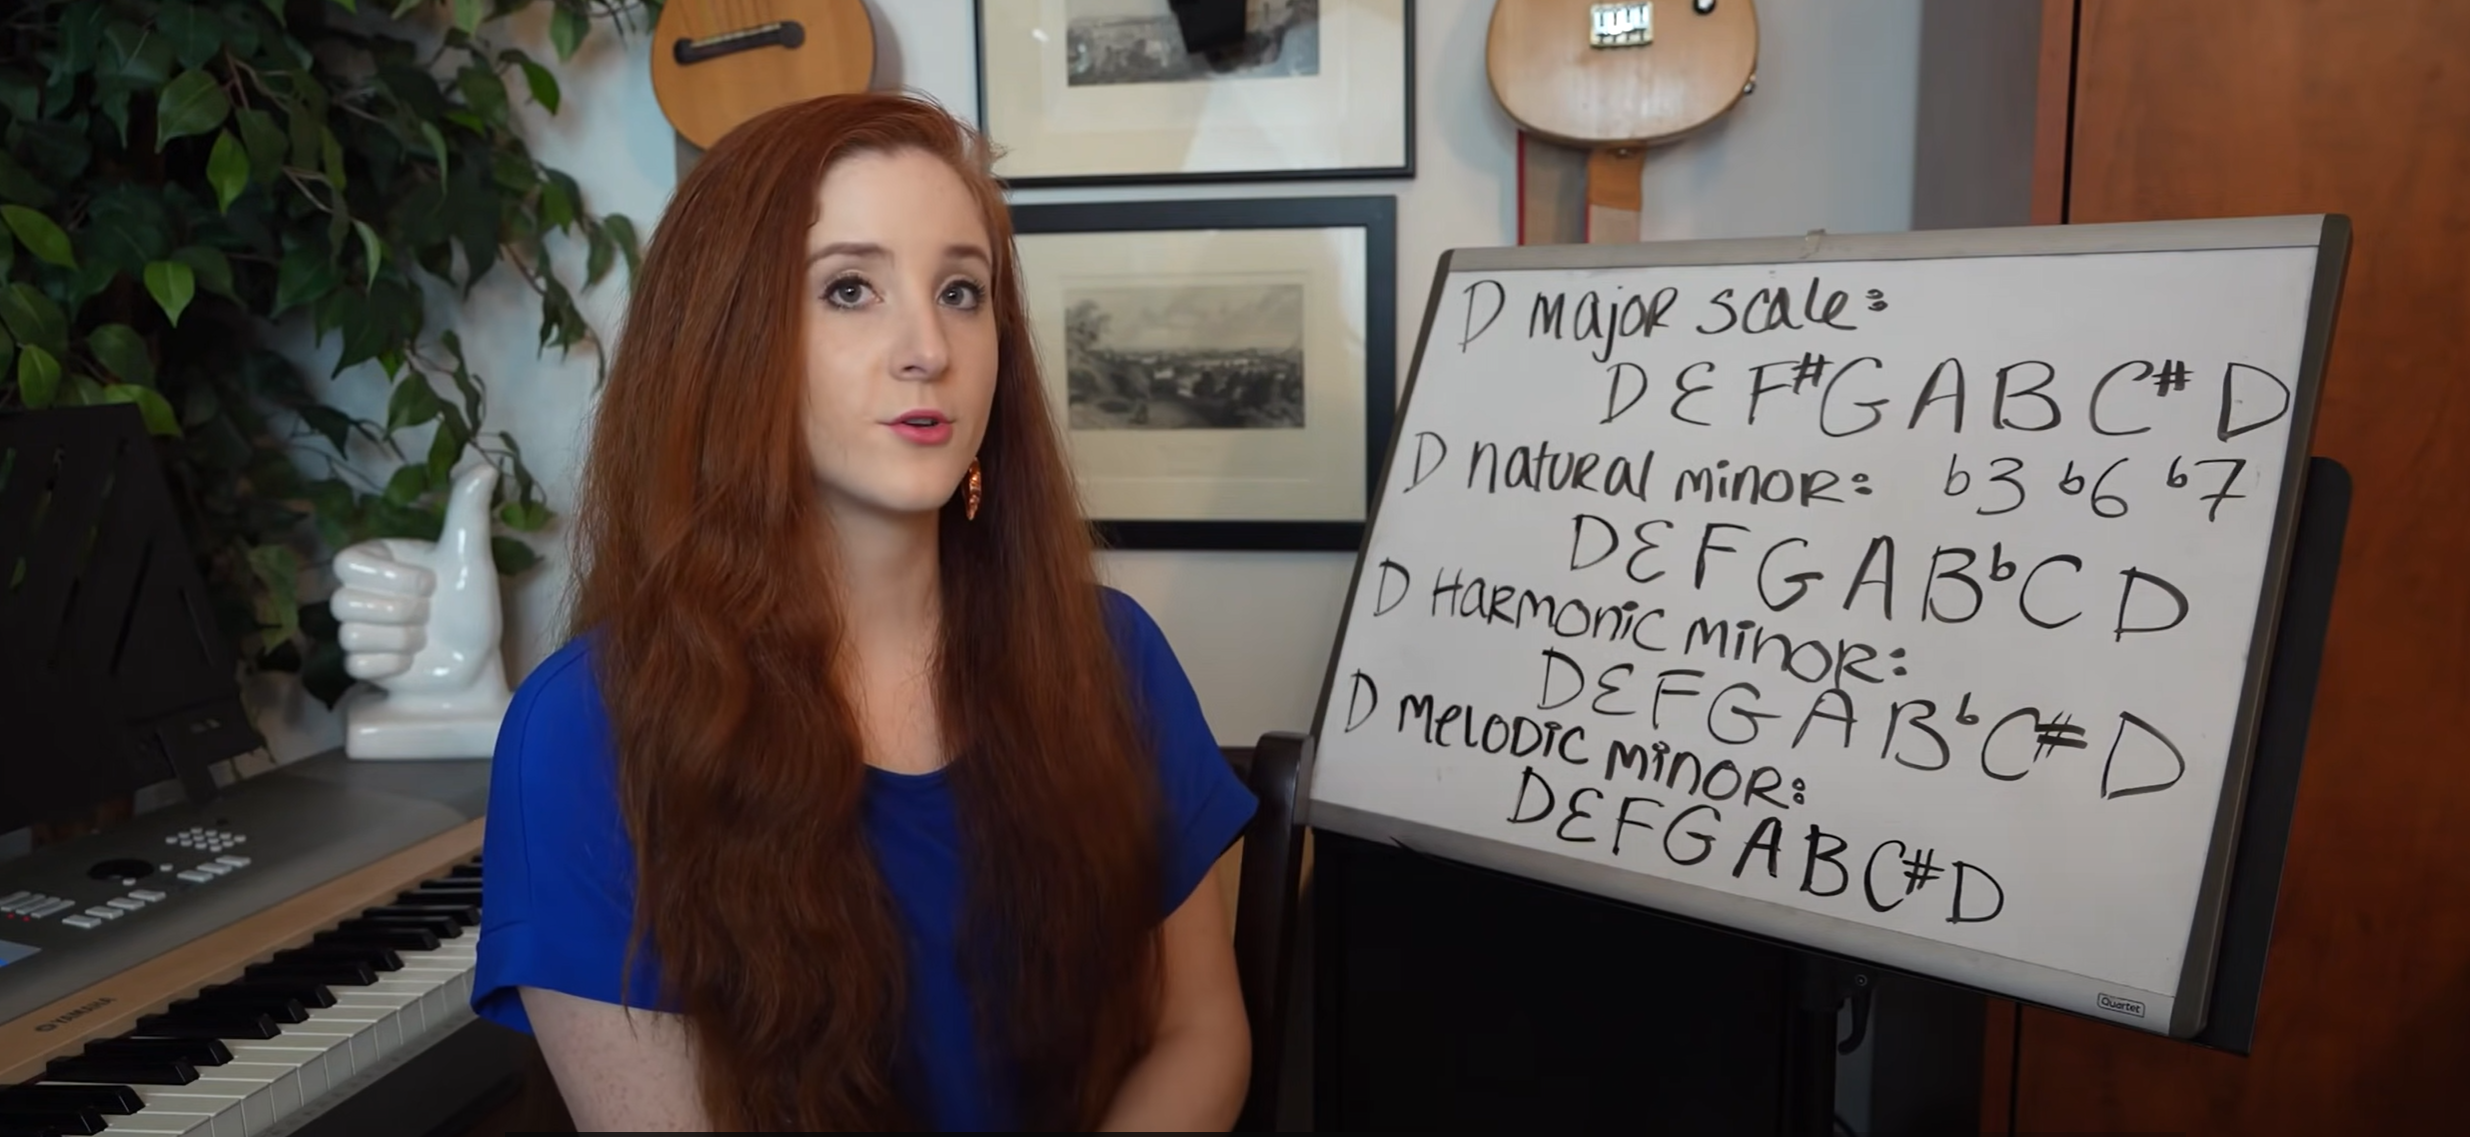 D major scale:
D E F# G A B C# D
D natural minor: b3 b6 b7
D E F G A Bb C D
D Harmonic minor:
D E F G A Bb C# D
D Melodic minor:
D E F G A B C# D
Quartet
YAMAHA